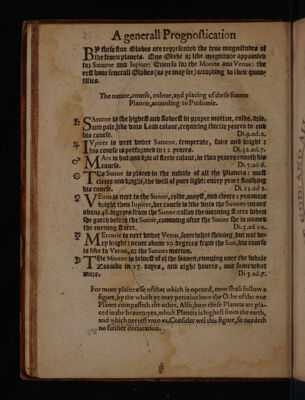 A generall Prognostication
By these fiue Globes are represented the true magnitudes of
the seuen planets. One Globe or like magnitude appointed
for Saturne and Iupiter: Euen so for the Moone and Venus: the
rest haue seuerall Globes (as ye may see) according to their quan-
tities.
The nature, course, colour, and placing of these seauen
Planets, according to Ptolomie.
♄ Saturne is the highest and slowest in proper motion, colde, drie,
and pale, like vnto Lead colour, requiring thirtie yeares to end
his course.
♃ Iupiter is next vnder Saturne, temperate, faire and bright:
his course is performed in 12 yeares.
♂ Mars is hot and drie of fierie colour, in two yeares endeth his
course.
☉ The Sunne is placed in the middle of all the Planets: most
cleere and bright, the well of pure light: euery yeare finishing
his course.
♀ Venus is next to the Sunne, colde, moyst, and cleere: yea more
bright then Iupiter, her course is like vnto the Sunnes: neuer
aboue 48 degrees from the Sunne: called the morning starre when
she goeth before the Sunne, comming after the Sunne she is named
the euening starre.
☿ Mercurie is next vnder Venus, somewhat shining, but not ve-
ry bright: neuer aboue 29 degrees from the Sun, his course
is like to Venus, or the Sunnes motion.
☽ The Moone is lowest of al the seauen, running ouer the whole
Zodiake in 27 dayes, and eight houres, and somewhat
more.
For more plainnesse of that which is opened, now shall follow a
figure, by the which ye may perceiue how the Orbe of the one
Planet compasseth the other. Also, how these Planets are pla-
ced in the heauen: yea, which Planets is highest from the earth,
and which neerest vnto vs. Consider wel this figure, so needeth
no further declaration.